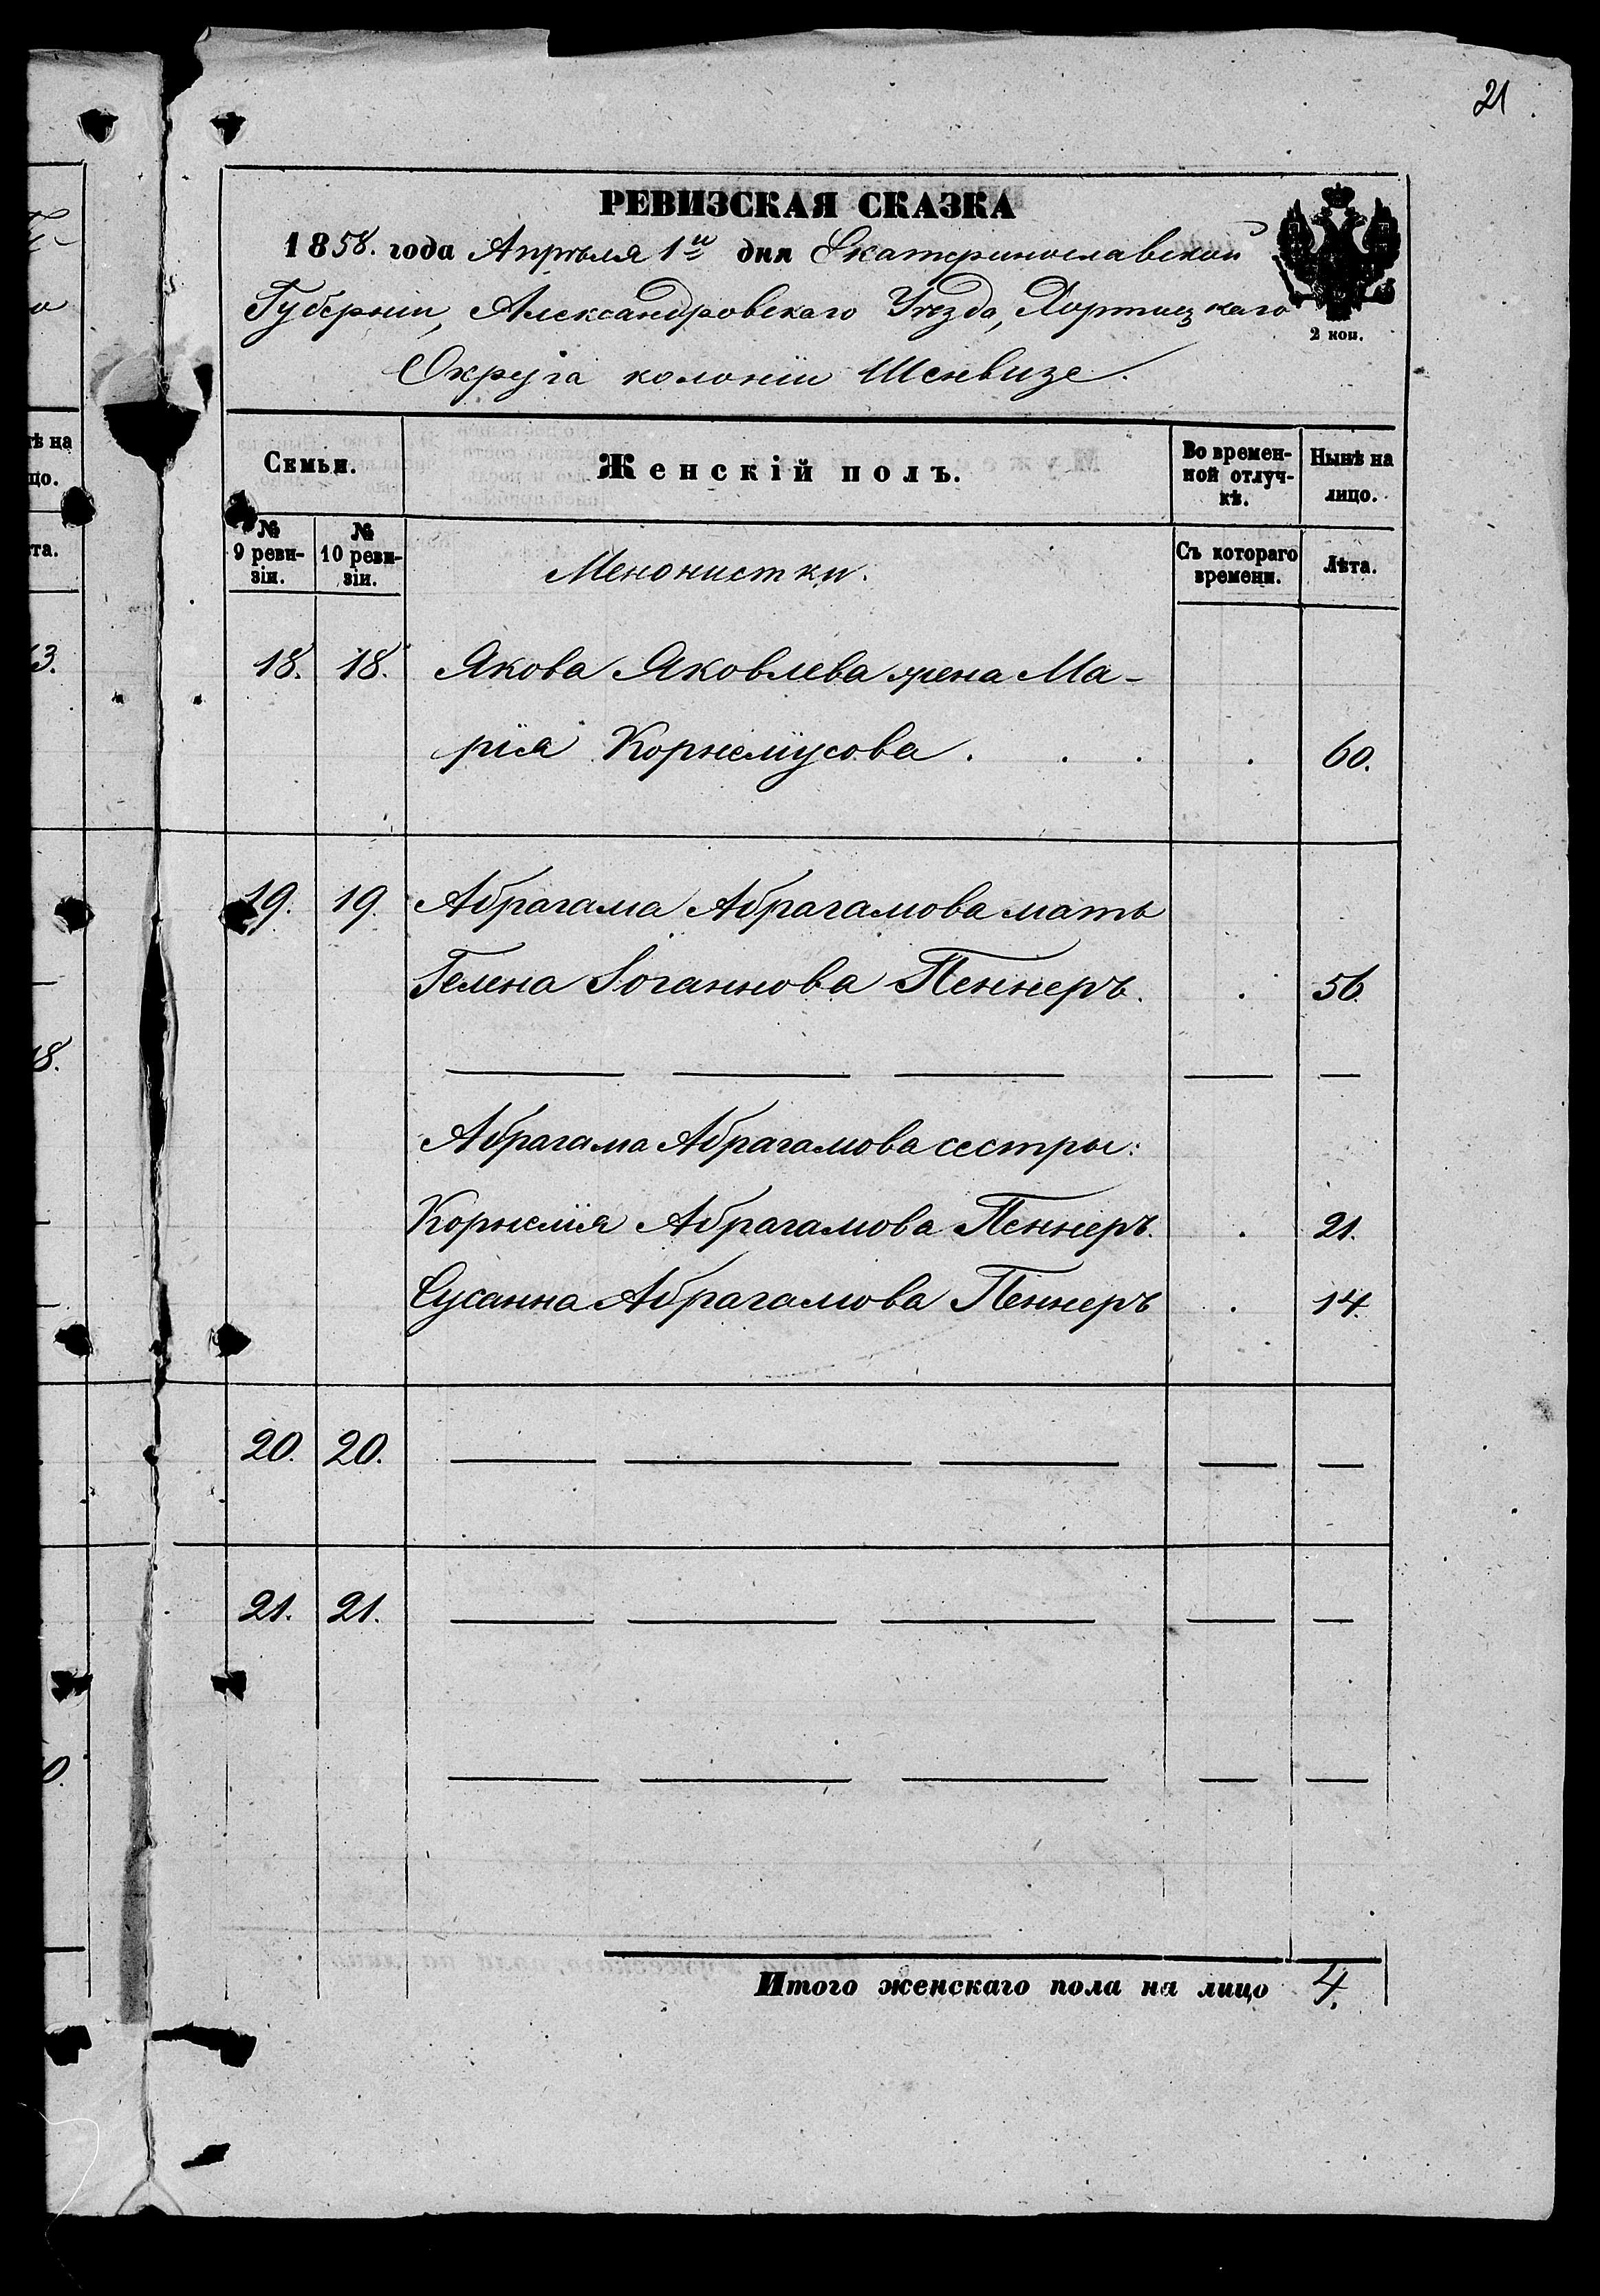 21
РЕВИЗСКАЯ СКАЗКА
1858. года Апрѣля 1го дня Екатеринославской
Губерніи, Александровскаго Уѣзда, Хортицкаго
2 коп.
Округа колоніи Шенвизе.
Семьи.
Женскій полъ.
Во времен-
ной отлуч-
кѣ.
Нынѣ на
лицо.
№
9 реви-
зіи.
№
10 реви-
зіи.
Менонистки.
Съ котораго
времени.
Лѣта.
18. 18. Якова Яковлева жена Ма-
рія Корнеліусова . . . . 60.
19. 19. Абрагама Абрагамова мать
Гелена Іоганнова Пеннеръ. . 56.
Абрагама Абрагамова сестры:
Корнелія Абрагамова Пеннеръ. . 21.
Сусанна Абрагамова Пеннеръ . 14.
20. 20.
21. 21.
Итого женскаго пола на лицо 4.